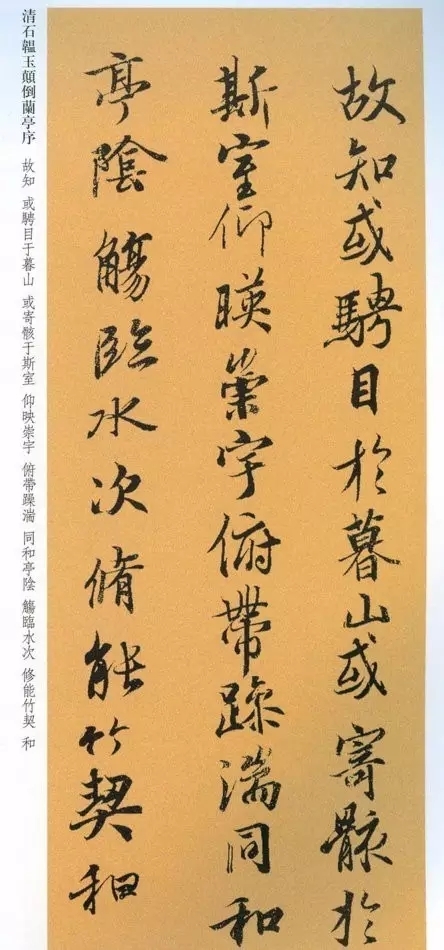 故知或騁目於暮山或寄骸於
斯室仰暎崇宇俯帶躁湍同和
亭陰觴臨水次脩能竹契和
清石韞玉顛倒蘭亭序 故知 或騁目于暮山 或寄骸于斯室 仰映崇宇 俯帶躁湍 同和亭陰 觴臨水次 修能竹契 和